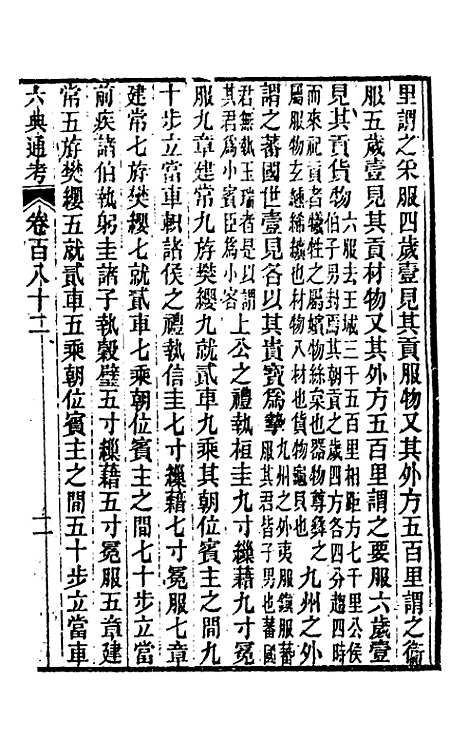 里謂之采服四歲壹見其貢服物又其外方五百里謂之衛
服五歲壹見其貢材物又其外方五百里謂之要服六歲壹
見其貢貨物六服去王城三千五百里相距方七千里公侯
伯子男封焉其朝貢之歲四方各四分趨四時
而來祀貢者犧牲之屬嬪物絲枲也器物尊彝之
屬服物玄纁絺纊也材物也貨物龜貝也九州之外
謂之蕃國世壹見各以其貴寶爲摯九州之外夷服鎮服蕃
服其君皆子男也蕃國
君無執玉瑞者是以謂
其君爲小賓臣爲小客上公之禮執桓圭九寸繅藉九寸冕
服九章建常九斿樊纓九就貳車九乘其朝位賓主之間九
十步立當車軹諸侯之禮執信圭七寸繅藉七寸冕服七章
建常七斿樊纓七就貳車七乘朝位賓主之間七十步立當
前疾諸伯執躬圭諸子執穀璧五寸繅藉五寸冕服五章建
常五斿樊纓五就貳車五乘朝位賓主之間五十步立當車
六典通考
卷百八十二
二